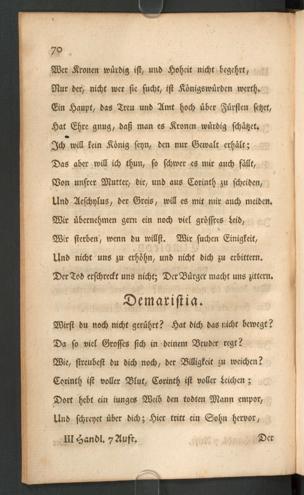 70
Wer Kronen würdig ist, und Hoheit nicht begehrt,
Nur der, nicht wer sie sucht, ist Königswürden werth.
Ein Haupt, das Treu und Amt hoch über Fürsten setzet,
Hat Ehre gnug, daß man es Kronen würdig schätzet.
Ich will kein König seyn, den nur Gewalt erhält;
Das aber will ich thun, so schwer es mir auch fällt,
Von unsrer Mutter, dir, und aus Corinth zu scheiden,
Und Aeschylus, der Greis, will es mit mir auch meiden.
Wir übernehmen gern ein noch viel grössres Leid,
Wir sterben, wenn du willst. Wir suchen Einigkeit,
Und nicht uns zu erhöhn, und nicht dich zu erbittern.
Der Tod erschreckt uns nicht; Der Bürger macht uns zittern.
Demaristia.
Wirst du noch nicht gerührt? Hat dich das nicht bewegt?
Da so viel Grosses sich in deinem Bruder regt?
Wie, streubest du dich noch, der Billigkeit zu weichen?
Corinth ist voller Blut, Corinth ist voller Leichen;
Dort hebt ein junges Weib den todten Mann empor,
Und schreyet über dich; Hier tritt ein Sohn hervor,
III Handl. 7 Auft. Der